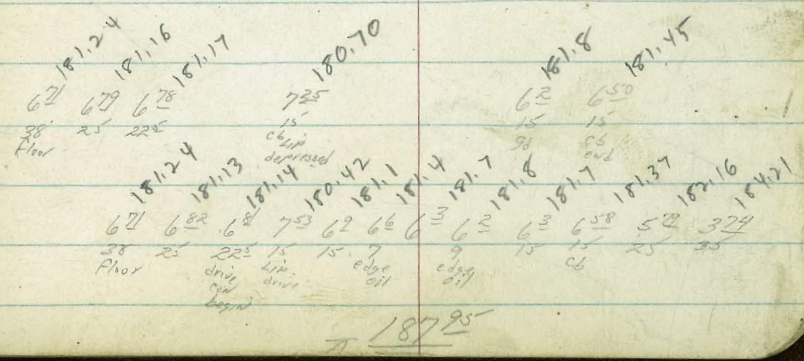 181.24 181.16 181.17 180.70 181.8 181.45
6 71 6 79 6 78 7 25 6 2 6 50
38 25 22 5 15 15 15
Floor cb Lip depressed gd cb end
181.24 181.13 181.14 180.42 181.1 181.4 181.7 181.8 181.7 181.37 182.16 184.21
6 71 6 82 6 81 7 53 6 9 6 6 6 3 6 2 6 3 6 58 5 79 3 74
38 25 22 5 15 15 7 9 15 15 25 35
Floor drive con begin Lip drive edge oil edge oil cb
π 187 95